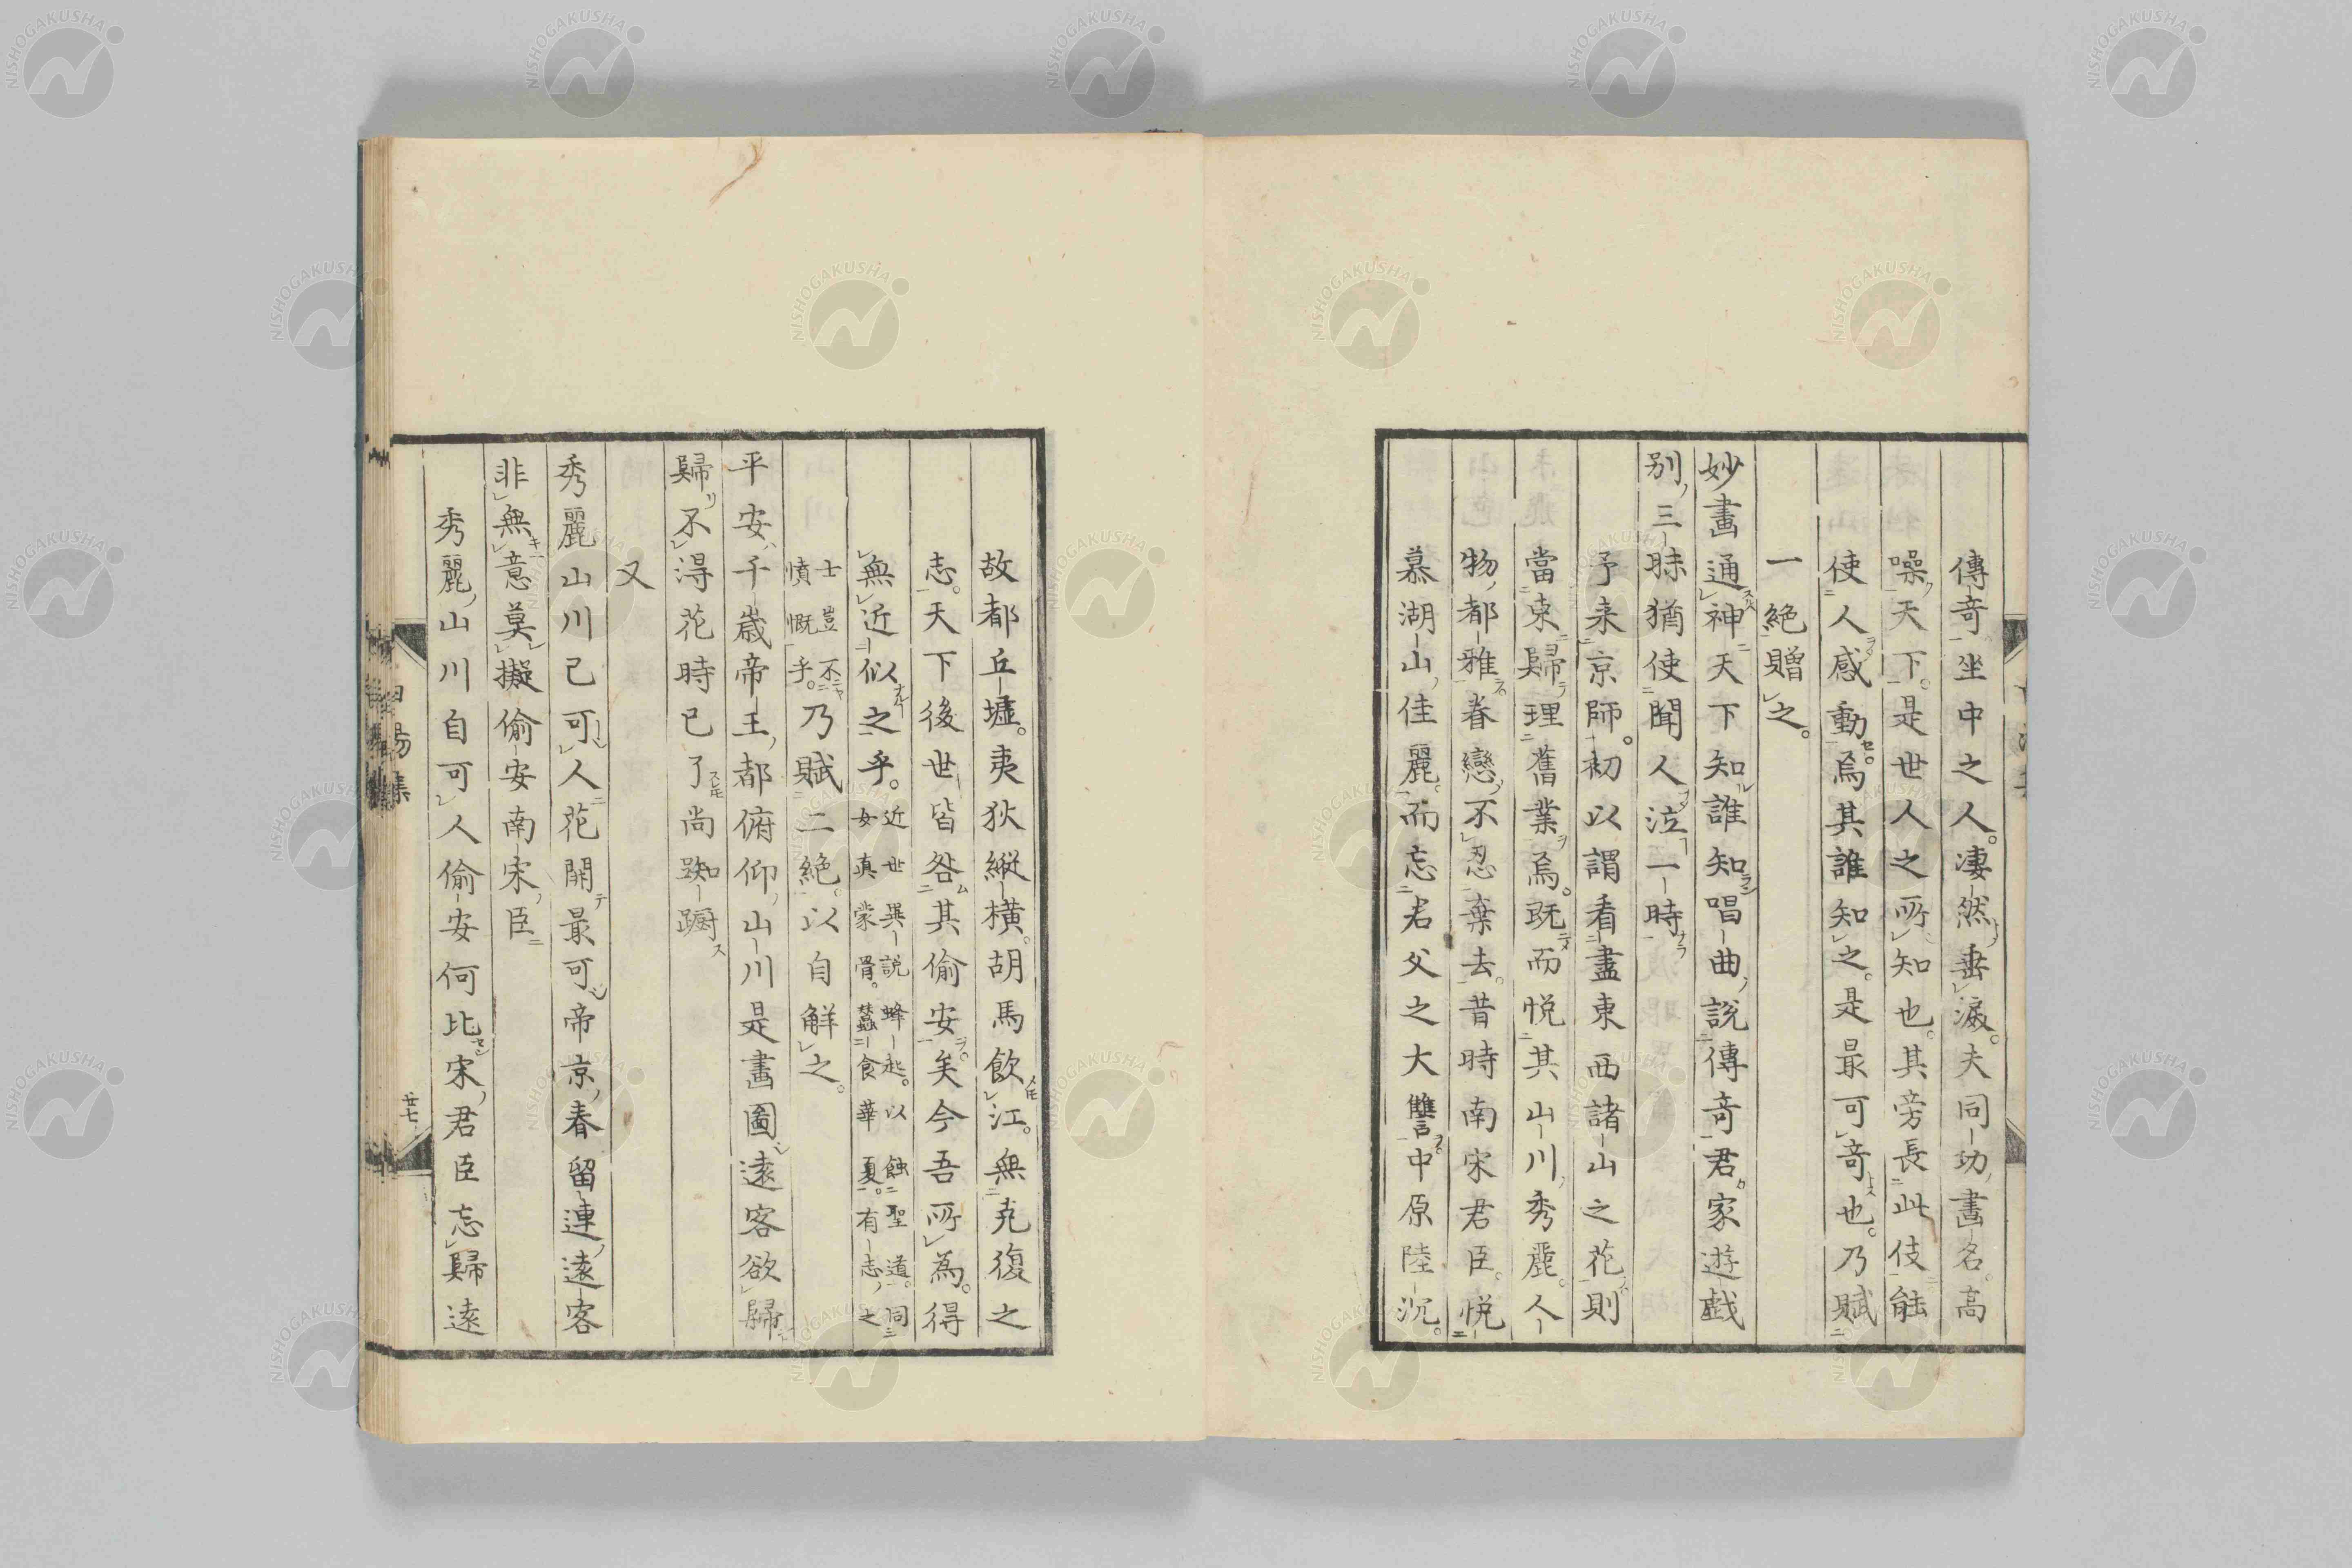 傳奇坐中之人。凄然垂淚。夫同功畫名。高
噪天下。是世人之所知也。其旁長此伎能
使人感動焉。其誰知之。是最可奇也。乃賦
一絶贈之。
妙畫通神天下知誰知唱曲說傳奇君家遊戯
別三昧猶使聞人泣一時
予来京師。初以謂看盡東西諸山之花則
當東歸理舊業焉。既而悦其山川秀麗。人
物都雅眷戀不忍棄去。昔時南宋君臣。悦
慕湖山佳麗。而忘君父之大讐。中原陸沉。
故都丘墟。夷狄縱横。胡馬飲江。無克復之
志。天下後世皆咎其偷安矣今吾所為。得
無近似之乎。近世異說蜂起。以蝕聖道。同
女真蒙骨。蠶食華夏。有志之
士豈不
憤慨乎。乃賦二絶。以自解之。
平安千歳帝王都俯仰山川是畫圖遠客欲歸
歸不得花時已了尚踟蹰
又
秀麗山川已可人花開最可帝京春留連遠客
非無意莫擬偷安南宋臣
秀麗山川自可人偷安何比宋君臣忘歸遠
廿七
NISHOGAKUSHA